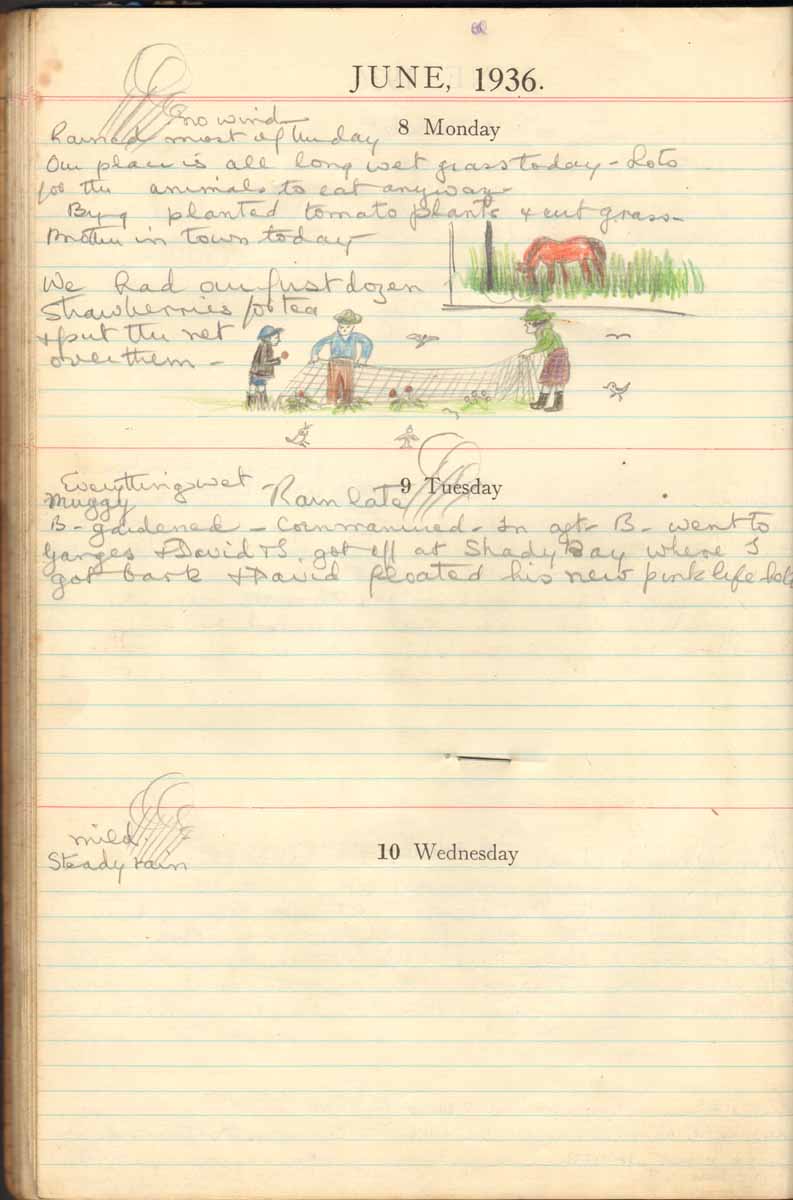 JUNE, 1936.
no wind
8 Monday
Rained most of the day
Our place is all long wet grass today - Lots
for the animals to eat anyway -
By q planted tomato plants & cut grass -
Brother in town today
We had our first dozen
Strawberries for tea
& put the net
over them -
Everything wet - Rain late
9 Tuesday
Muggy
B - gardened - in aft - B - went to
Ganges & David & I got off at Shady Bay where I
got bark & David floated his new pink life
mild
10 Wednesday
Steady rain